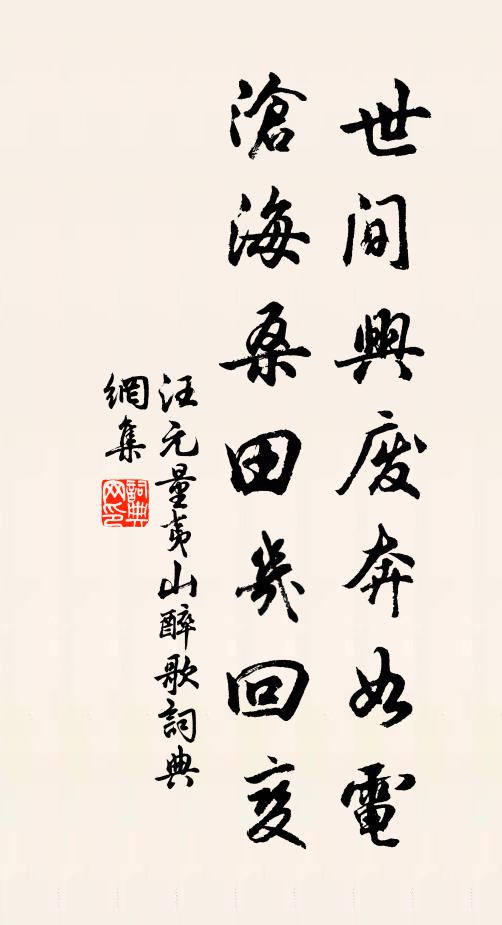 世间興废奔如電
滄海桑田幾回变
汪元量夷山醉歌詞典
網集
詞典
网印